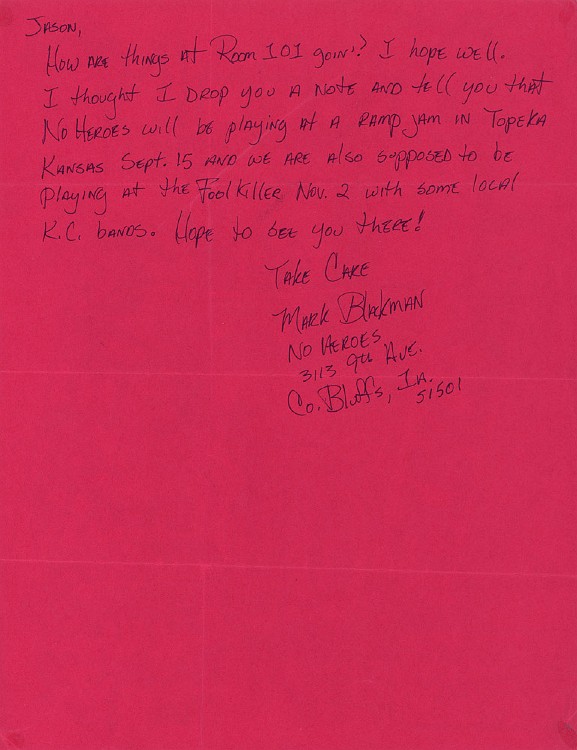 Jason,
How are things at Room 101 goin'? I hope well.
I thought I drop you a note and tell you that
No Heroes will be playing at a ramp jam in Topeka
Kansas Sept. 15 and we are also supposed to be
playing at the Foolkiller Nov. 2 with some local
K.C. bands. Hope to see you there!
Take Care
Mark Blackman
No Heroes
3113 9th Ave.
Co. Bluffs, Ia.
51501